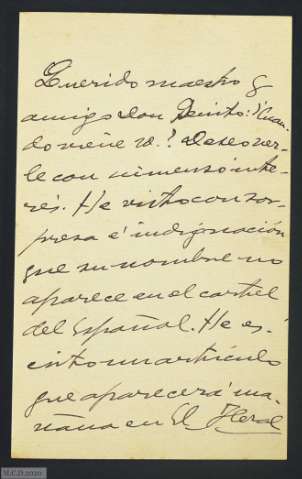 Querido maestro y
amigo don Benito: ¿Cuan-
do viene Vd.? Deseo ver-
le con inmenso inte-
rés. He visto con sor-
presa é indignación
que su nombre no
aparece en el cartel
del Español. He es-
crito un artículo
que aparecerá ma-
ñana en El Heral
M.C.D 2020